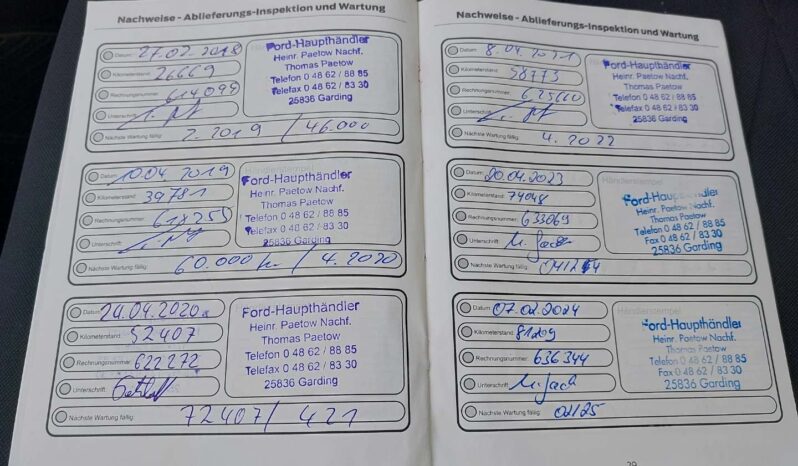 Nachweise - Ablieferungs-Inspektion und Wartung
Datum: 27.02.2018
Kilometerstand: 26669
Rechnungsnummer: 614099
Unterschrift:
Nächste Wartung fällig: 2.2019 / 46.000
Ford-Haupthändler
Heinr. Paetow Nachf.
Thomas Paetow
Telefon 0 48 62 / 88 85
Telefax 0 48 62 / 83 30
25836 Garding
Datum: 10.04.2019
Kilometerstand: 39781
Rechnungsnummer:
Unterschrift:
Nächste Wartung fällig: 60.000 km / 4.2020
Ford-Haupthändler
Heinr. Paetow Nachf.
Thomas Paetow
Telefon 0 48 62 / 88 85
Telefax 0 48 62 / 83 30
25836 Garding
Datum: 24.04.2020
Kilometerstand: 52407
Rechnungsnummer: 622272
Unterschrift:
Nächste Wartung fällig: 72407 / 421
Ford-Haupthändler
Heinr. Paetow Nachf.
Thomas Paetow
Telefon 0 48 62 / 88 85
Telefax 0 48 62 / 83 30
25836 Garding
Nachweise - Ablieferungs-Inspektion und Wartung
Datum: 8.04.2021
Kilometerstand: 58773
Rechnungsnummer: 625660
Unterschrift:
Nächste Wartung fällig: 4.2022
Ford-Haupthändler
Heinr. Paetow Nachf.
Thomas Paetow
Telefon 0 48 62 / 88 85
Telefax 0 48 62 / 83 30
25836 Garding
Datum: 20.04.2023
Kilometerstand: 74048
Rechnungsnummer: 633069
Unterschrift:
Nächste Wartung fällig:
Ford-Haupthändler
Heinr. Paetow Nachf.
Thomas Paetow
Telefon 0 48 62 / 88 85
Fax 0 48 62 / 83 30
25836 Garding
Datum: 07.02.2024
Kilometerstand: 81209
Rechnungsnummer: 636344
Unterschrift:
Nächste Wartung fällig: 02/25
Händlerstempel
Ford-Haupthändler
Heinr. Paetow Nachf.
Thomas Paetow
Telefon 0 48 62 / 88 85
Fax 0 48 62 / 83 30
25836 Garding
29